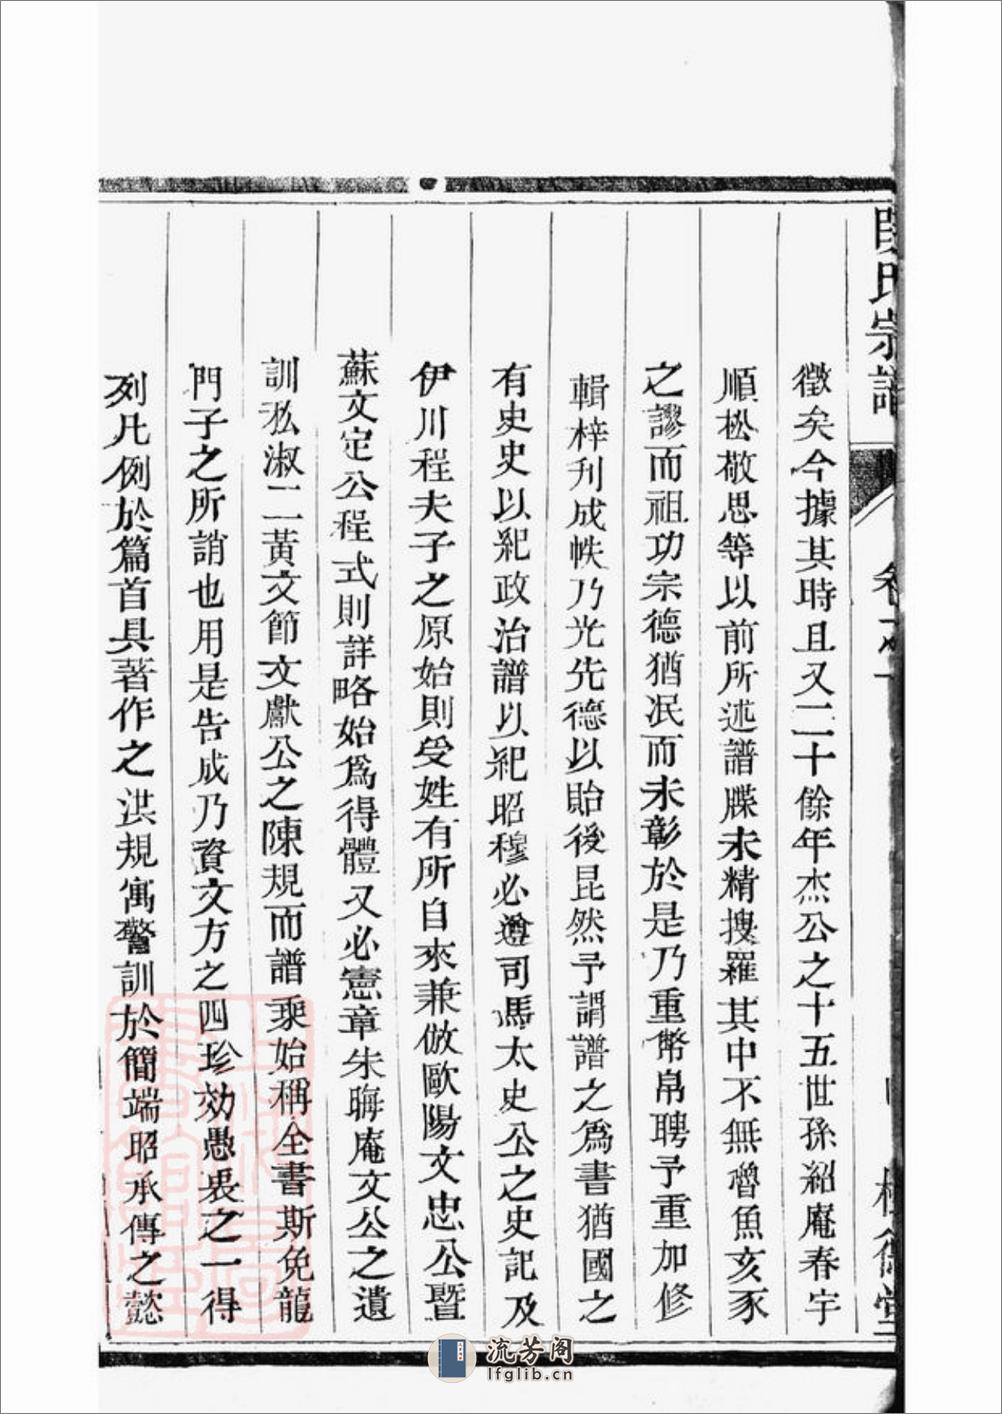 段氏宗譜
卷之一
徵矣今據其時且又二十餘年杰公之十五世孫紹庵春宇
順松敬思等以前所述譜牒未精搜羅其中不無魯魚亥豕
之謬而祖功宗德猶泯而未彰於是乃重幣帛聘予重加修
輯梓刋成帙乃光先德以貽後昆然予謂譜之爲書猶國之
有史史以紀政治譜以紀昭穆必遵司馬太史公之史記及
伊川程夫子之原始則受姓有所自來兼倣歐陽文忠公曁
蘇文定公程式則詳略始爲得體又必憲章朱晦庵文公之遺
訓私淑二黃文節文獻公之陳規而譜乘始稱全書斯免龍
門子之所誚也用是告成乃資文方之四珍効愚衷之一得
列凡例於篇首具著作之洪規寓警訓於簡端昭承傳之懿
流芳阁
lfglib.cn